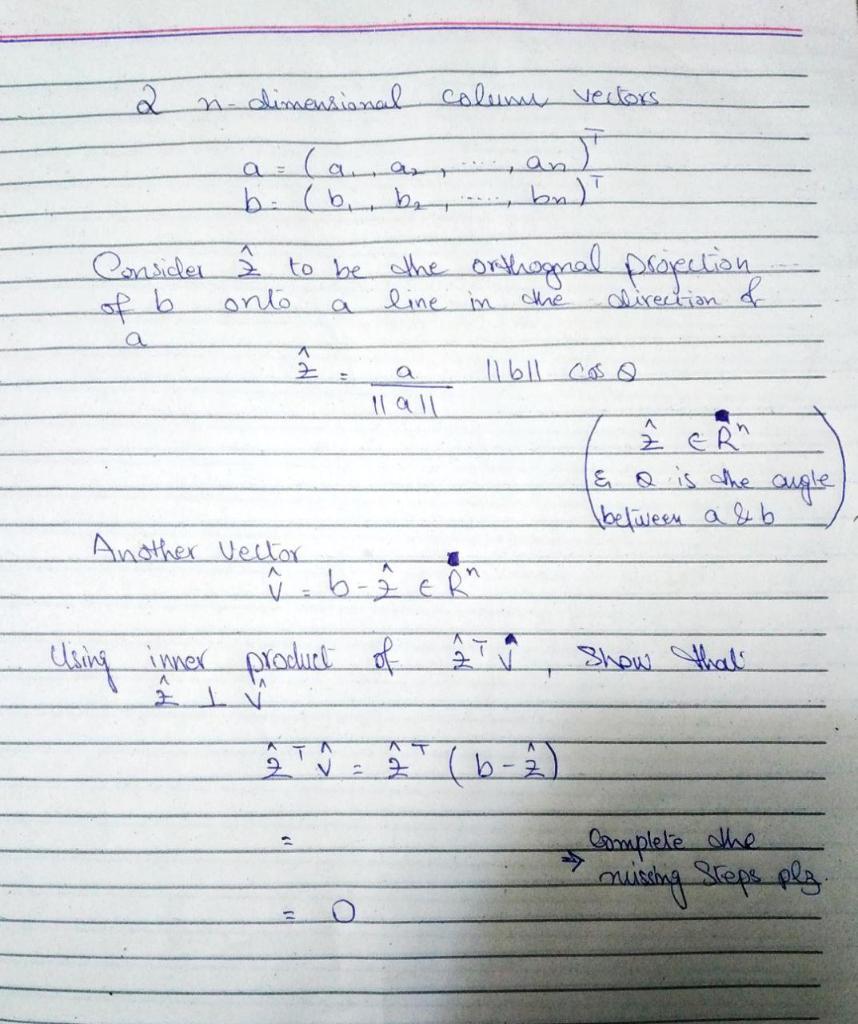 2 n-dimensional column vectors
a = (a₁, a₂, ....., aₙ)ᵀ
b = (b₁, b₂, ....., bₙ)ᵀ
Consider ẑ to be the orthognal projection
of b onto a line in the direction of
a
ẑ = a / ||a|| ||b|| cos θ
( ẑ ∈ Rⁿ
& θ is the angle
between a & b )
Another vector
v̂ = b - ẑ ∈ Rⁿ
Using inner product of ẑᵀ v̂, show that
ẑ ⊥ v̂
ẑᵀ v̂ = ẑᵀ (b - ẑ)
= ⇒ Complete the
missing steps plz.
= 0